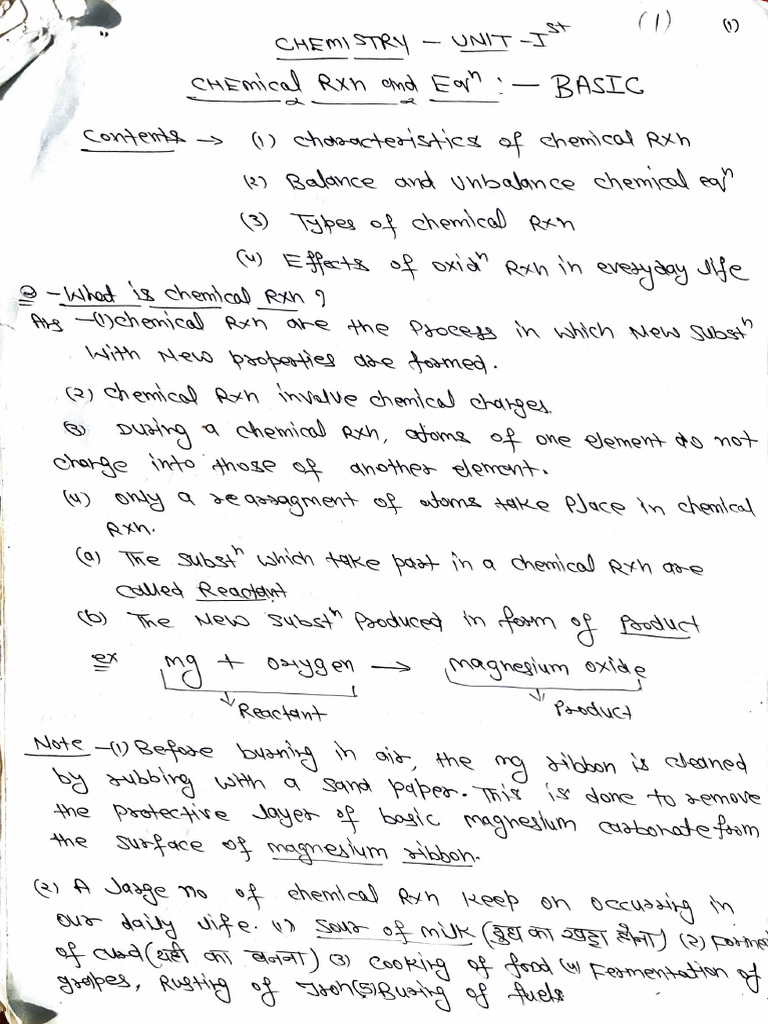 (1) (1)
CHEMISTRY – UNIT – Ist
CHEMical Rxn and Eqn : — BASIC
Contents → (1) characteristics of chemical Rxn
(2) Balance and Unbalance chemical eqn
(3) Types of chemical Rxn
(4) Effects of oxidn Rxn in everyday life
Q – What is chemical Rxn ?
Ans – (1) chemical Rxn are the Process in which New Substn
With New properties are formed.
(2) chemical Rxn involve chemical charges.
(3) During a chemical Rxn, atoms of one element do not
charge into those of another element.
(4) only a rearragment of atoms take Place in chemical
Rxn.
(a) The substn which take part in a chemical Rxn are
called Reactant
(b) The New substn Produced in form of Product
ex mg + oxygen → magnesium oxide
Reactant Product
Note – (1) Before burning in air, the mg ribbon is cleaned
by rubbing with a sand paper. This is done to remove
the protective layer of basic magnesium carbonate from
the surface of magnesium ribbon.
(2) A large no of chemical Rxn keep on occurring in
our daily life. (1) Sour of milk (दुध का खट्टा होना) (2)
of curd (दही का बनना) (3) Cooking of food (4) Fermentation of
grapes, Rusting of Iron (5) Buring of fuels